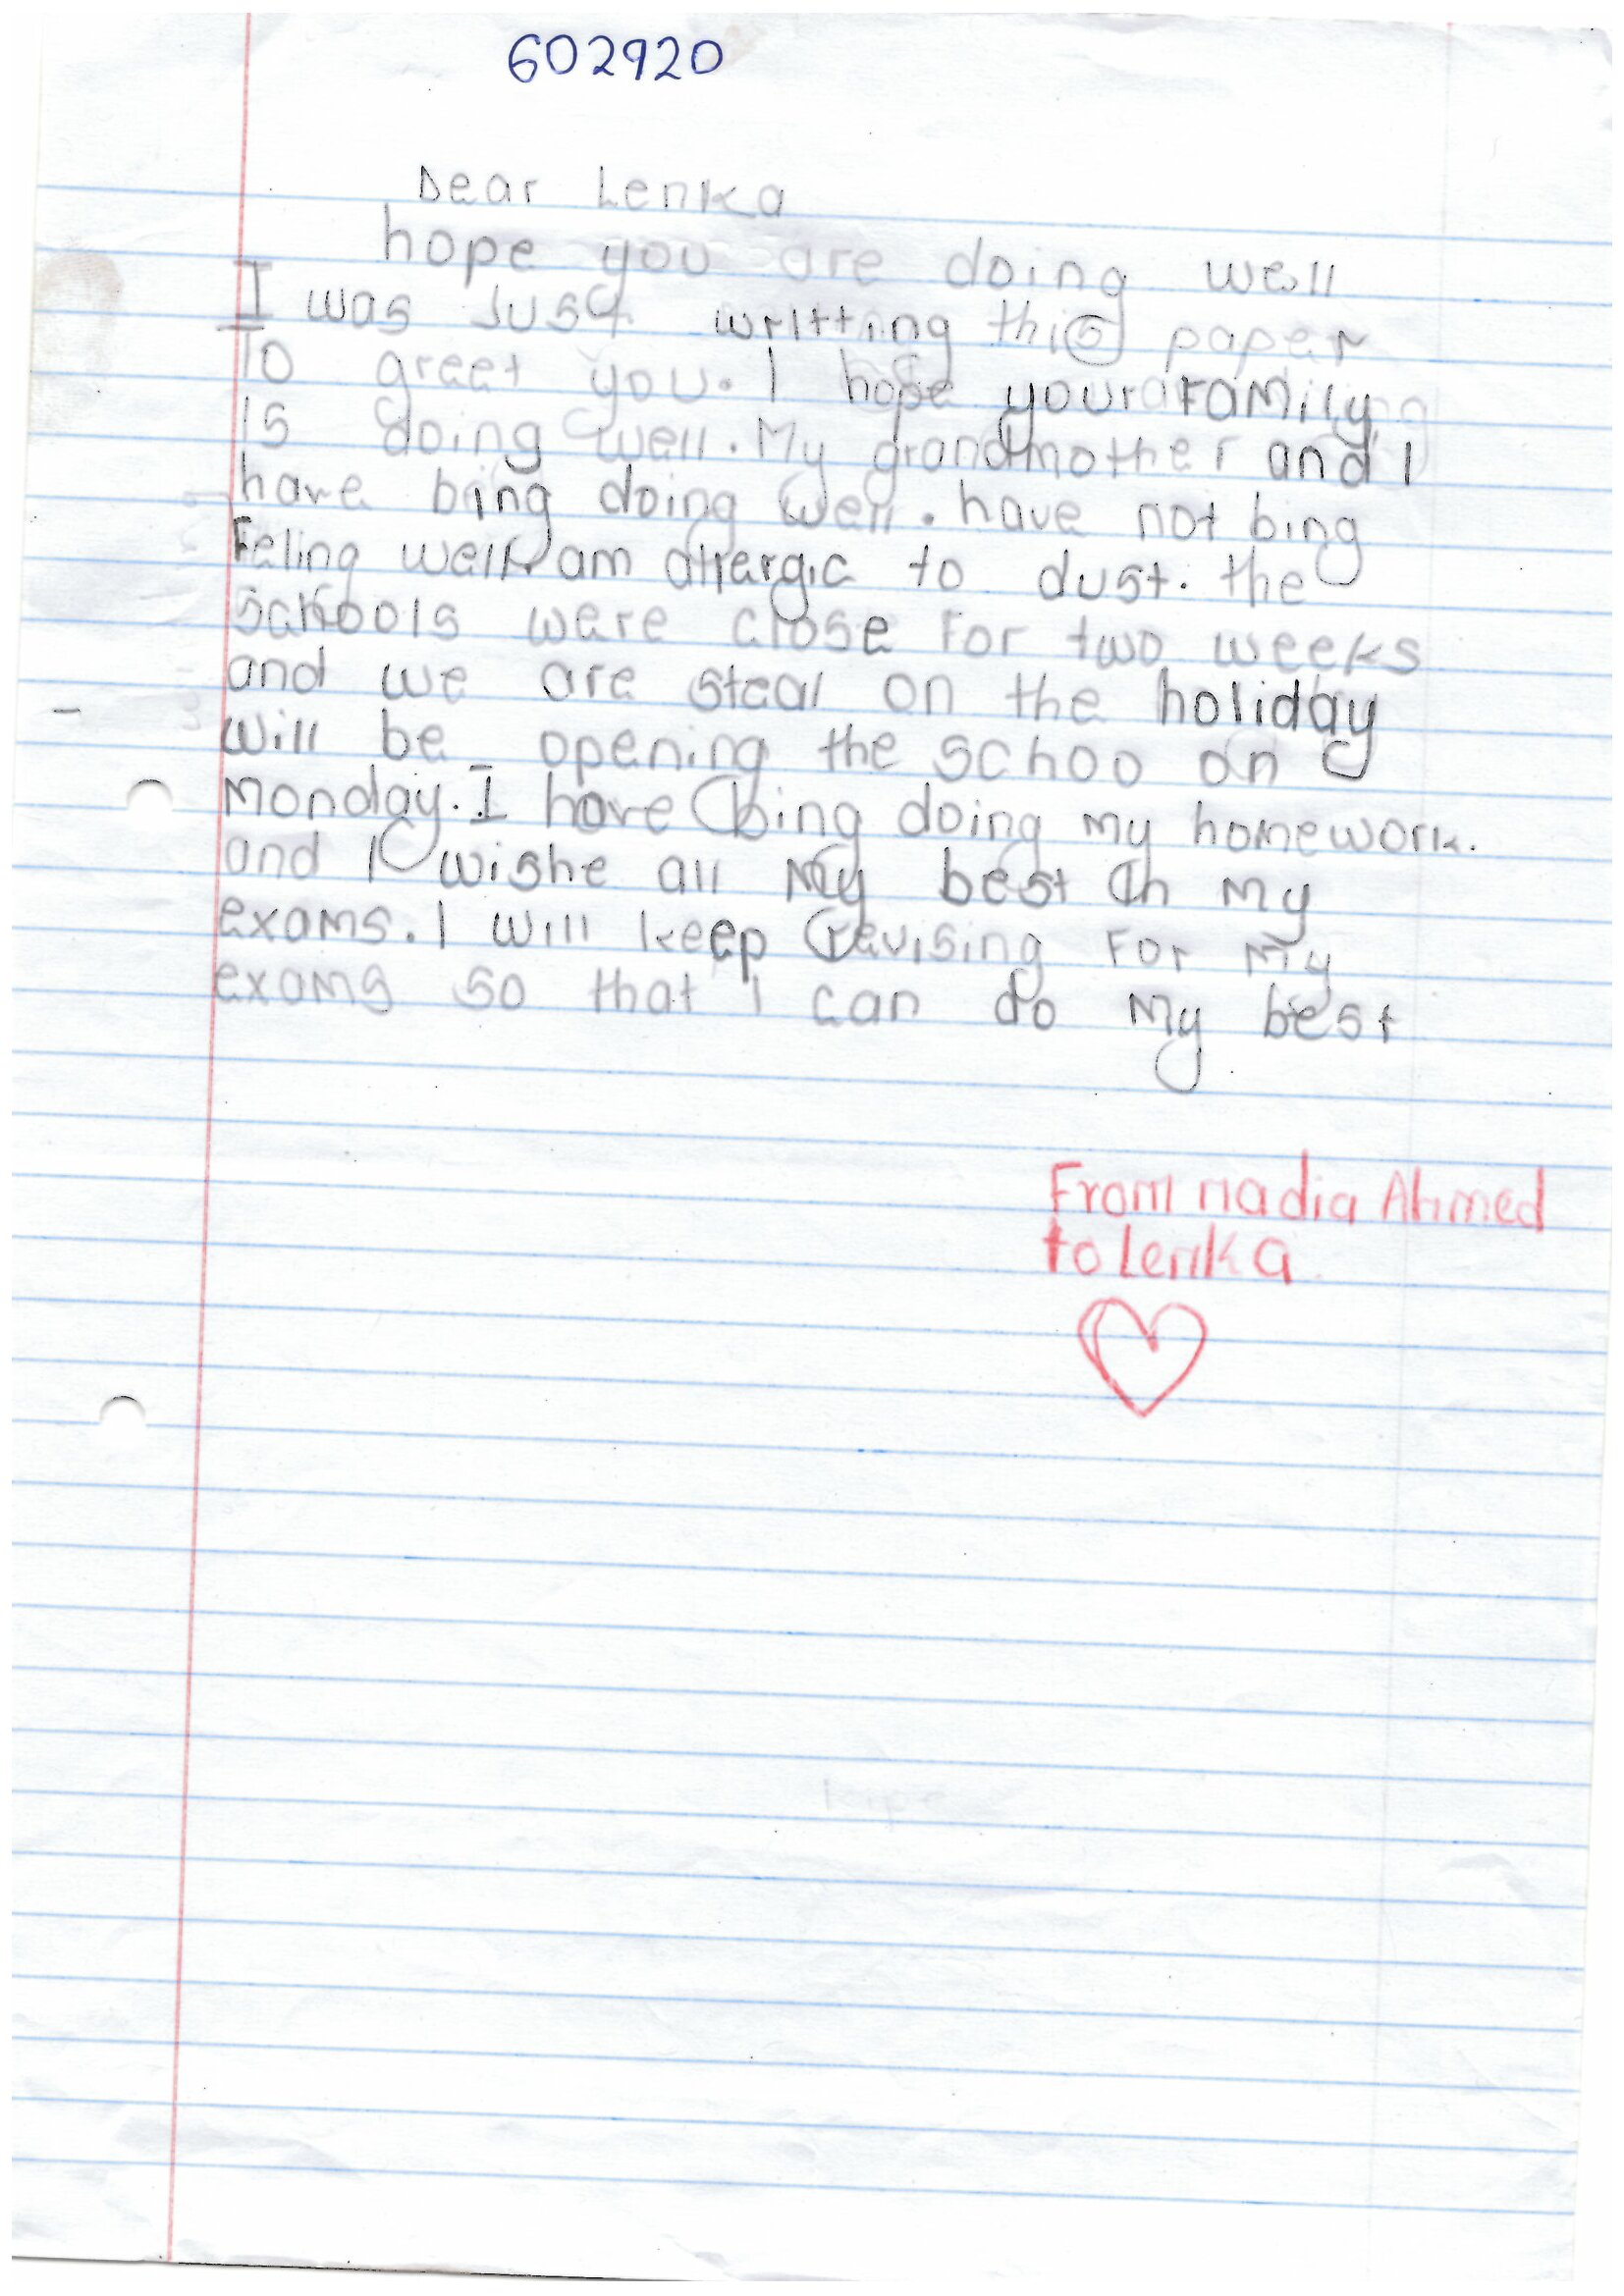 602920
Dear Lenka
hope you are doing well
I was Just writting this paper
To greet you. I hope your FaMily
is doing well. My grandmother and I
have bing doing well. have not bing
Feling well am allergic to dust. the
schools were close For two weeks
and we are steal on the holiday
will be opening the schoo on
Monday. I have bing doing my homework.
and I wishe all My best in My
exams. I will keep revising For My
exams so that I can do My best
From nadia Ahmed
to Lenka